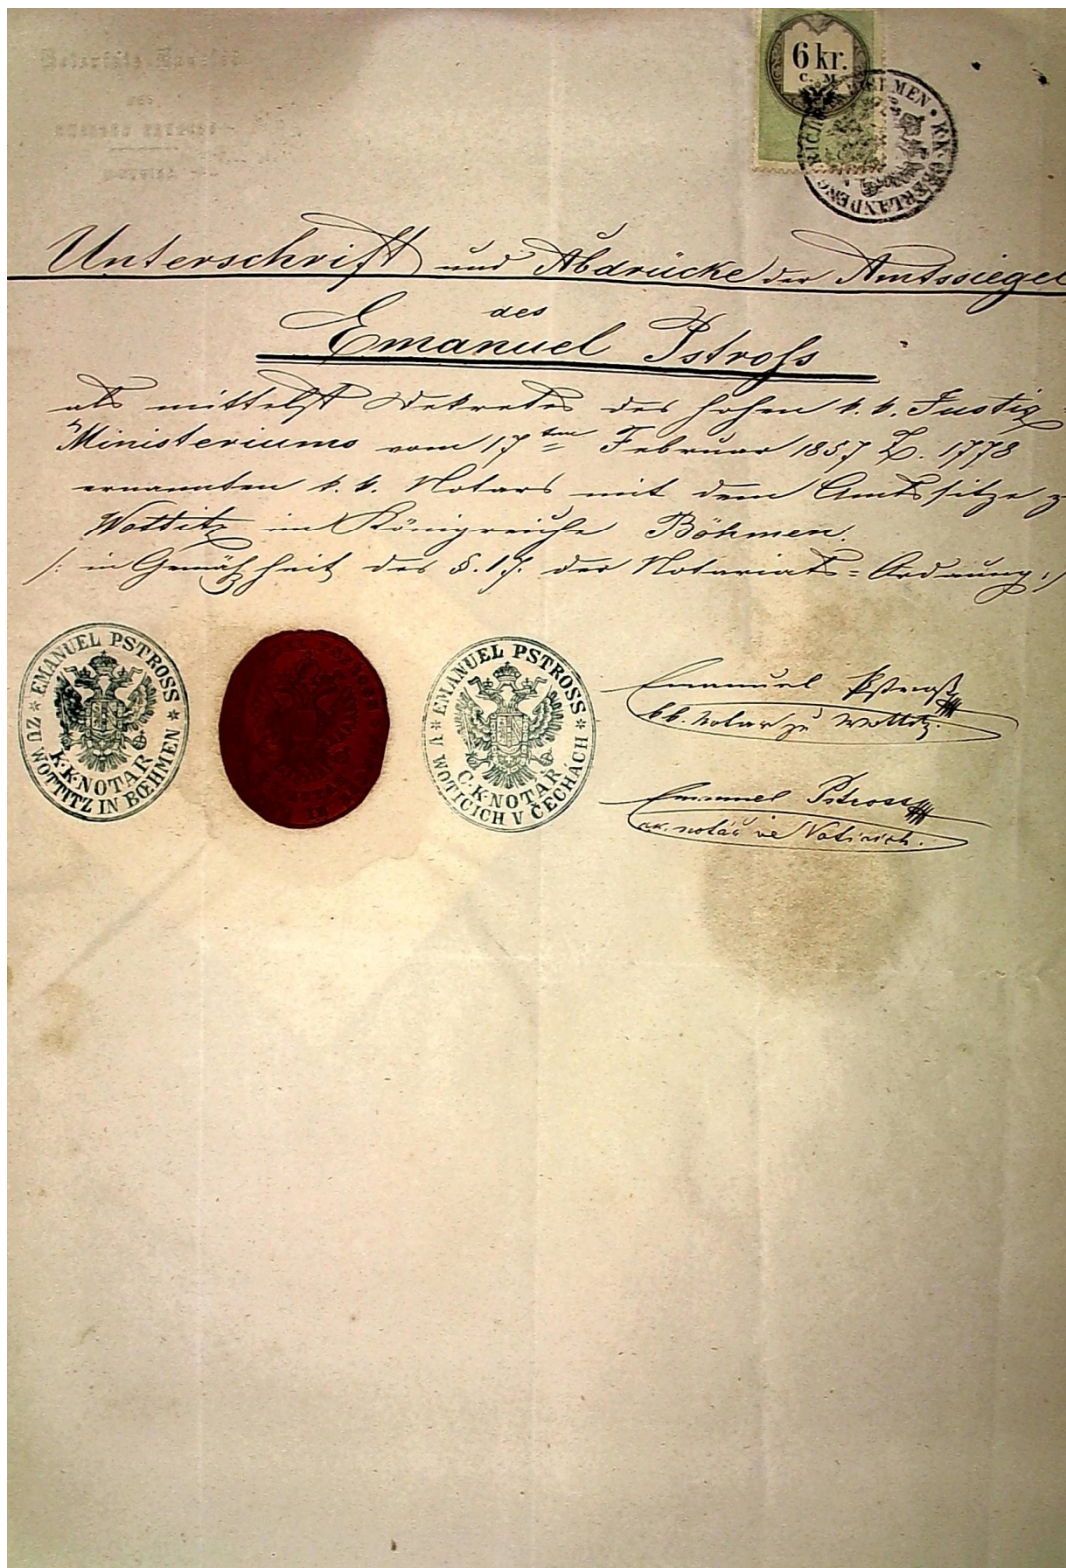 6 kr.
C. M.
Unterschrift und Abdrücke der Amtssiegel
des
Emanuel Pstroſs
als mittelst Dekretes des hohen k. k. Justiz-
Ministeriums vom 17ten Februar 1857 Z. 1778
ernannten k. k. Notars mit dem Amtssitze z
Wottitz im Königreiche Böhmen.
/: in Gemäßheit des §. 17. der Notariats-Ordnung. /
* EMANUEL PSTROSS *
K.K.NOTAR
ZU WOTTITZ IN BŒHMEN
* EMANUEL PSTROSS *
C.K.NOTAR
V WOTICICH V ČECHÁCH
Emanuel Pstroß
kk. Notar zu Wottitz.
Emanuel Pstross
c.k. notář ve Voticích.